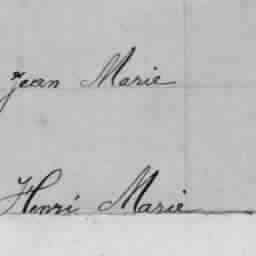 Jean Marie
Henri Marie